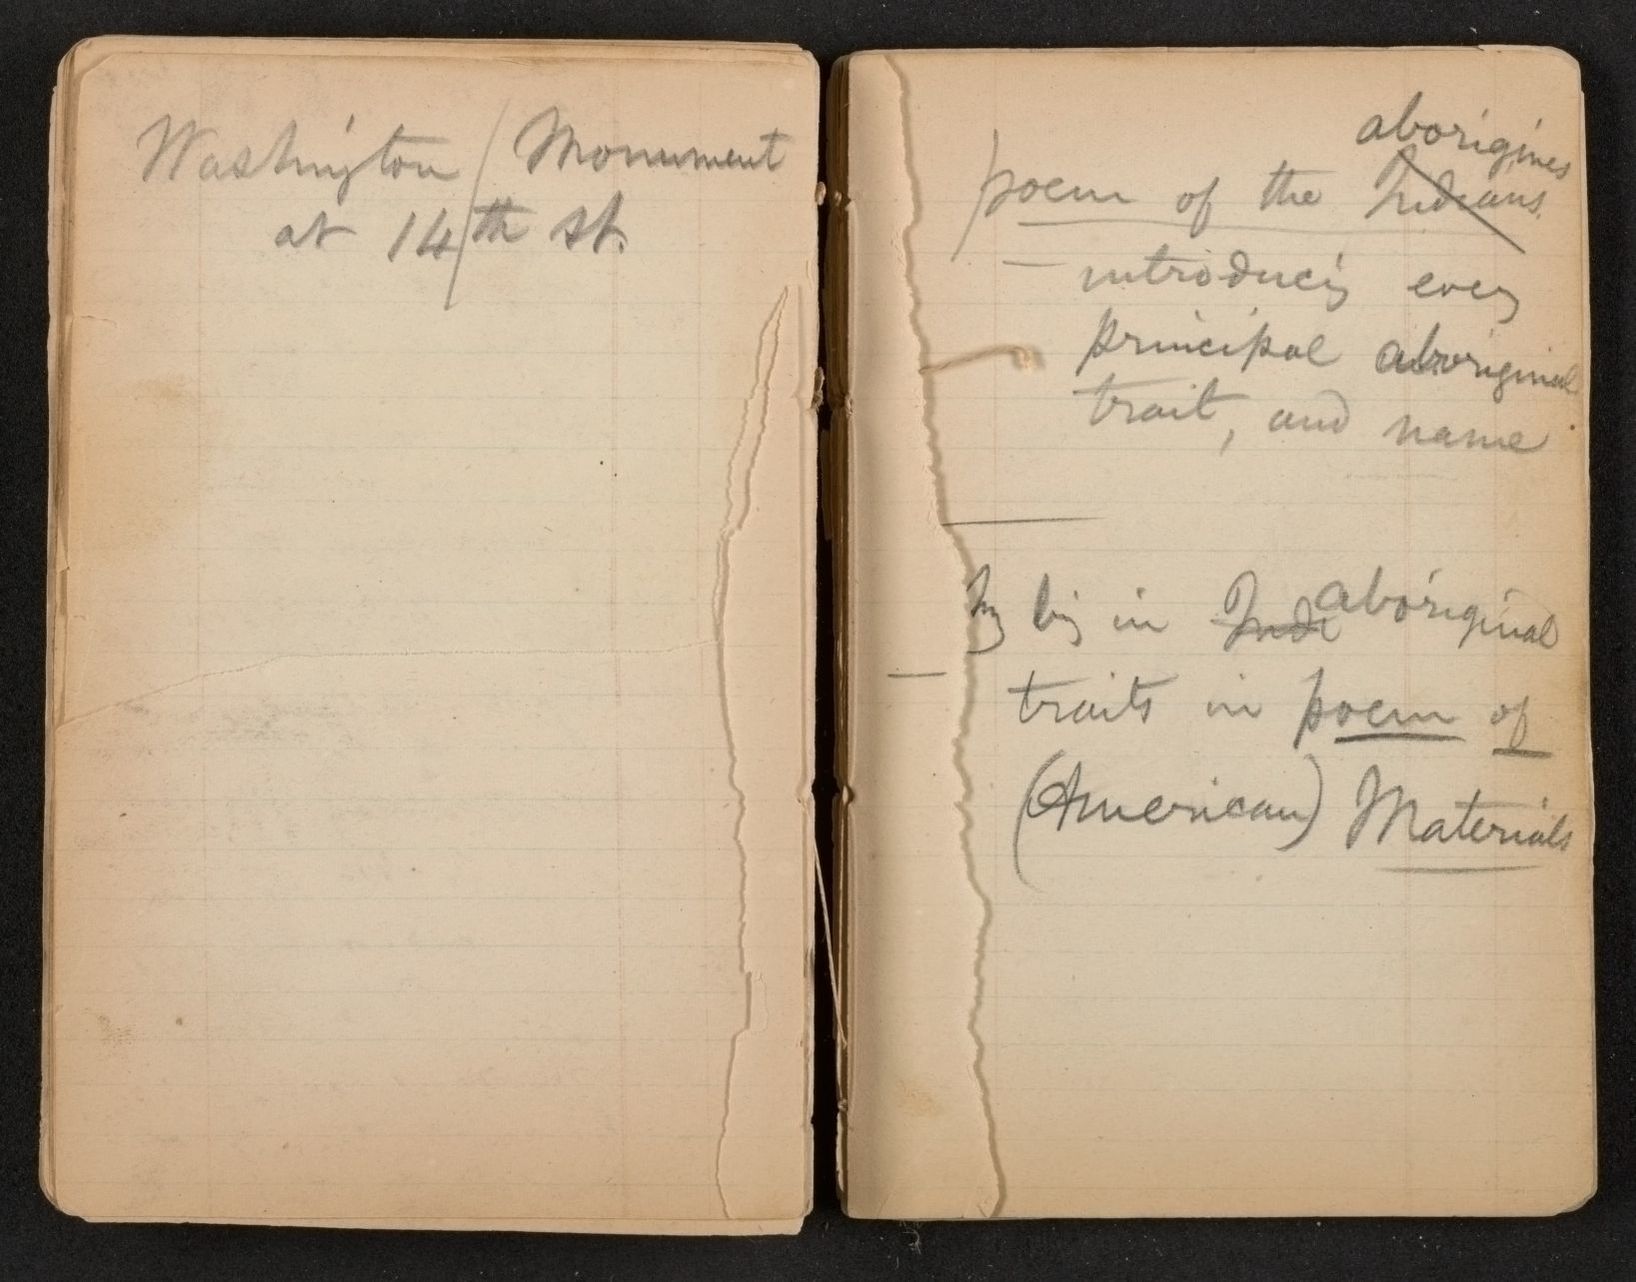 Washington Monument
at 14th st.
aborigines
poem of the Indians.
— introducing every
principal aboriginal
trait, and name
big in Indi aboriginal
— traits in poem of
(American) Materials